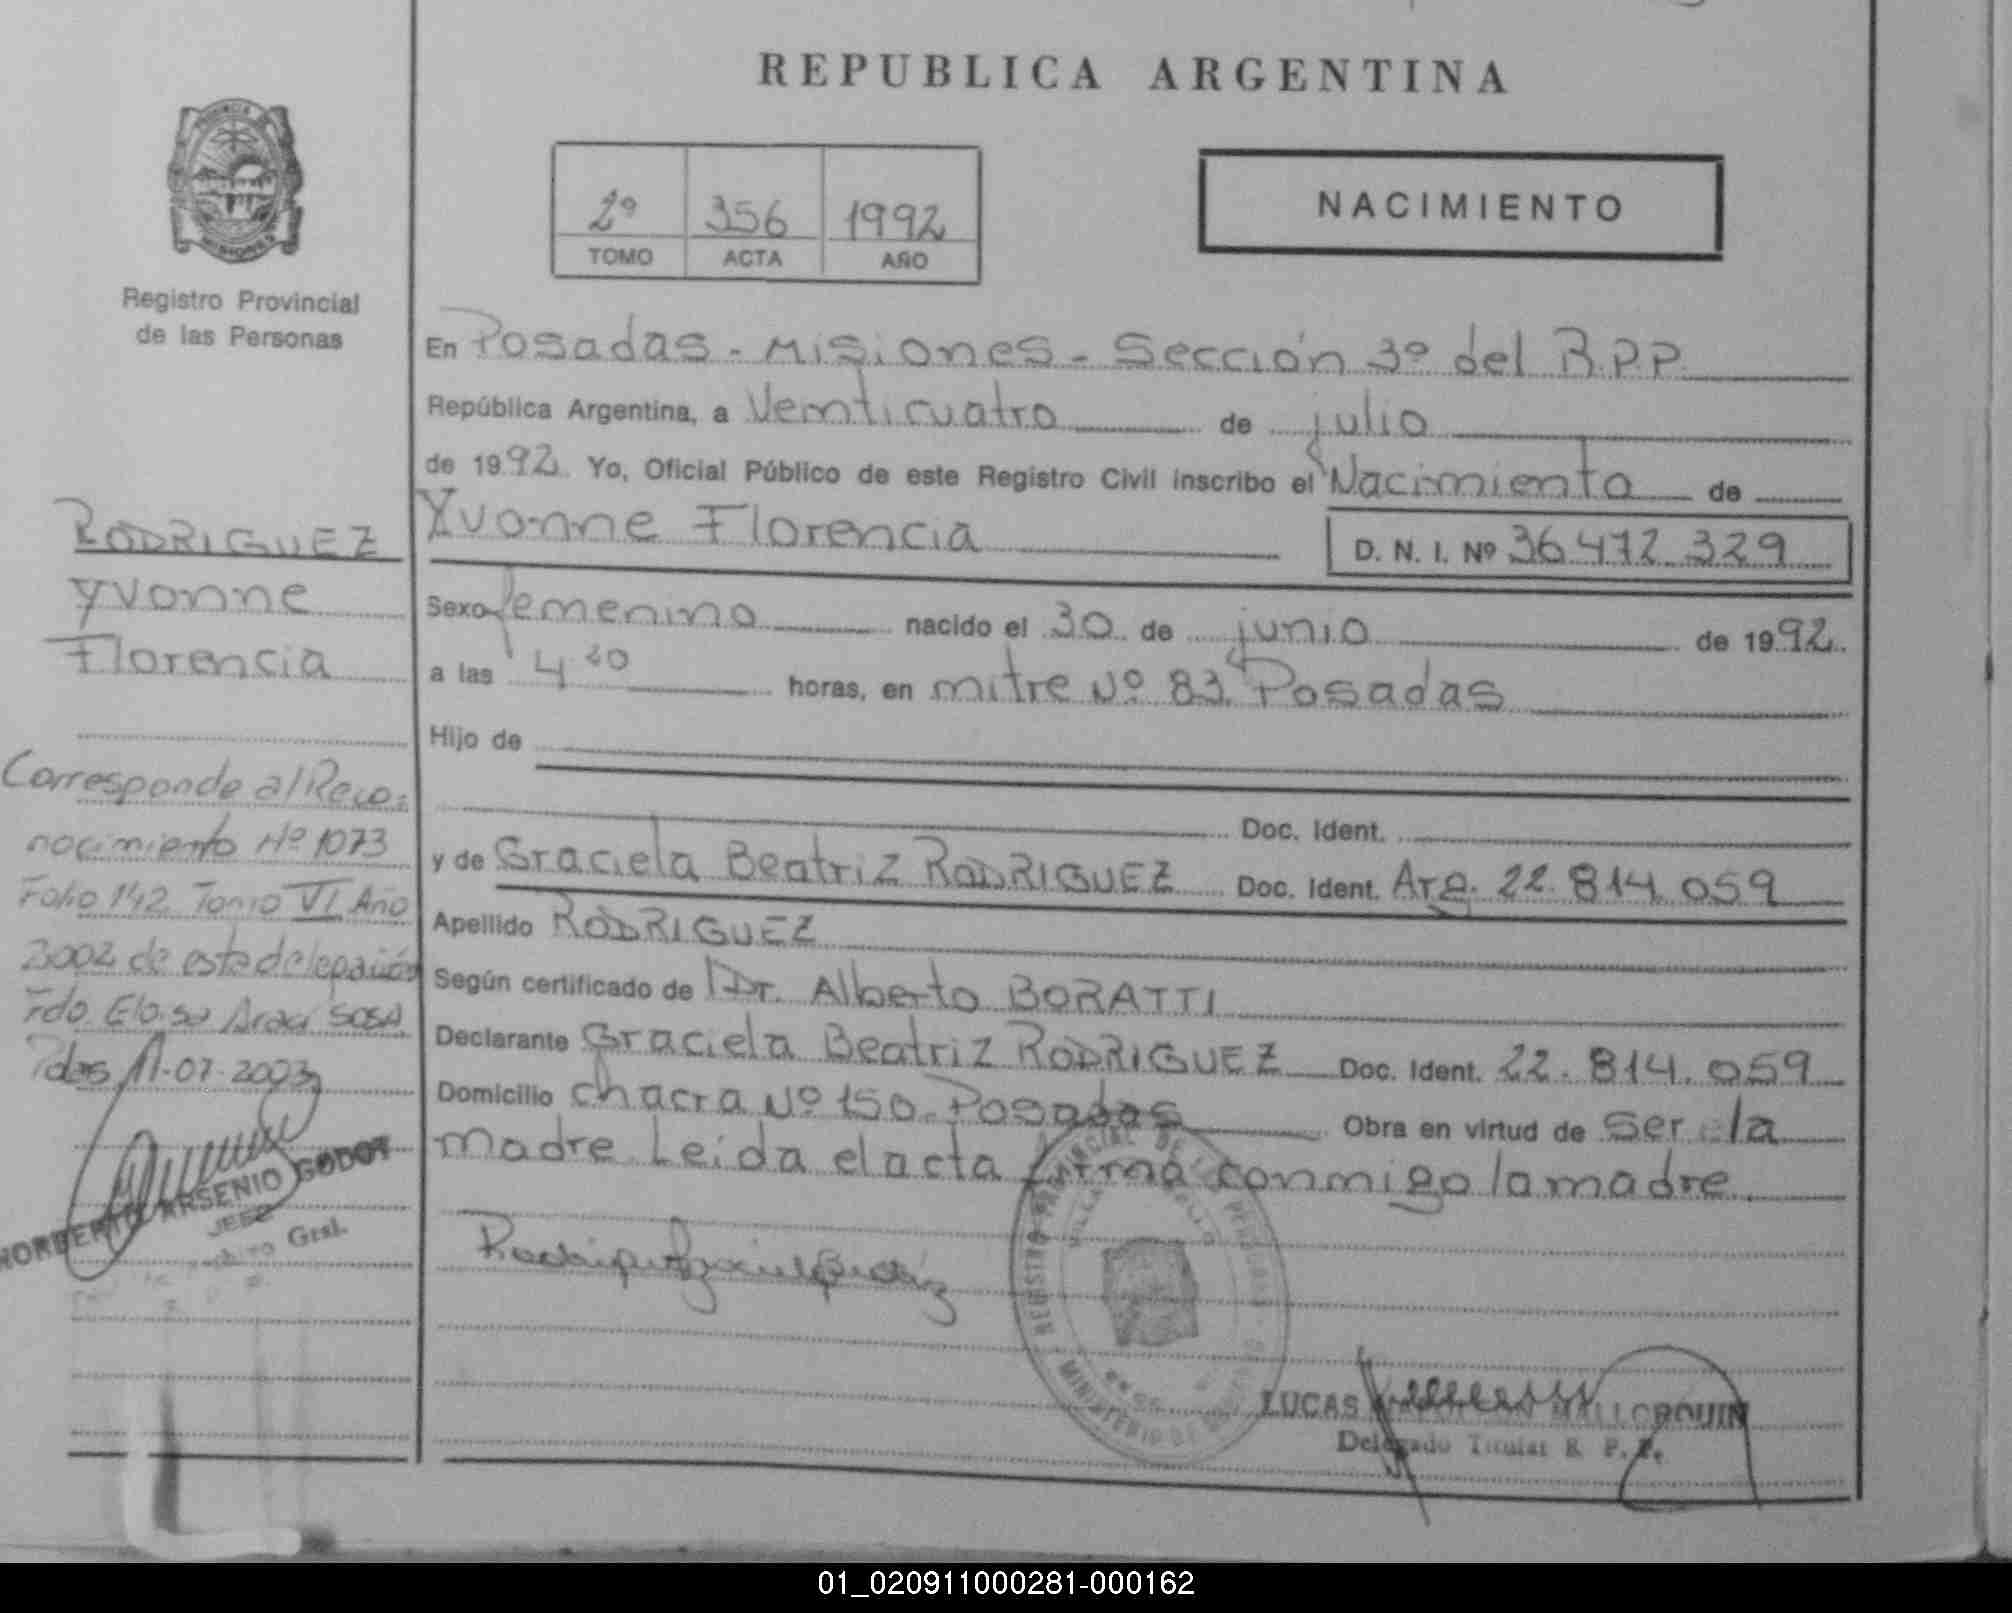 REPUBLICA ARGENTINA
PROVINCIA DE
MISIONES
Registro Provincial
de las Personas
2º 356 1992
TOMO ACTA AÑO
NACIMIENTO
En Posadas - Misiones - Sección 3º del R.P.P.
República Argentina, a Veinticuatro de julio
de 1992. Yo, Oficial Público de este Registro Civil inscribo el Nacimiento de
Yvonne Florencia
D. N. I. Nº 36.472.329
Sexo femenino nacido el 30 de junio de 1992.
a las 4 20 horas, en mitre Nº 83. Posadas
Hijo de
Doc. Ident.
y de Graciela Beatriz RODRIGUEZ Doc. Ident. Arg. 22.814.059
Apellido RODRIGUEZ
Según certificado de Dr. Alberto BORATTI
Declarante Graciela Beatriz RODRIGUEZ Doc. Ident. 22.814.059
Domicilio chacra Nº 150. Posadas Obra en virtud de ser la
madre Leida el acta firma conmigo la madre.
RODRIGUEZ
Yvonne
Florencia
Corresponde al Reco=
nocimiento Nº 1073
Folio 142 Tomo VI Año
2002 de esta delegación
Fdo Eloisa Araci SOSA
Pdas 11-07-2003
NORBERTO ARSENIO GODOY
JEFE
Gral.
LUCAS MALLORQUIN
Delegado Titular R. P. P.
01_020911000281-000162